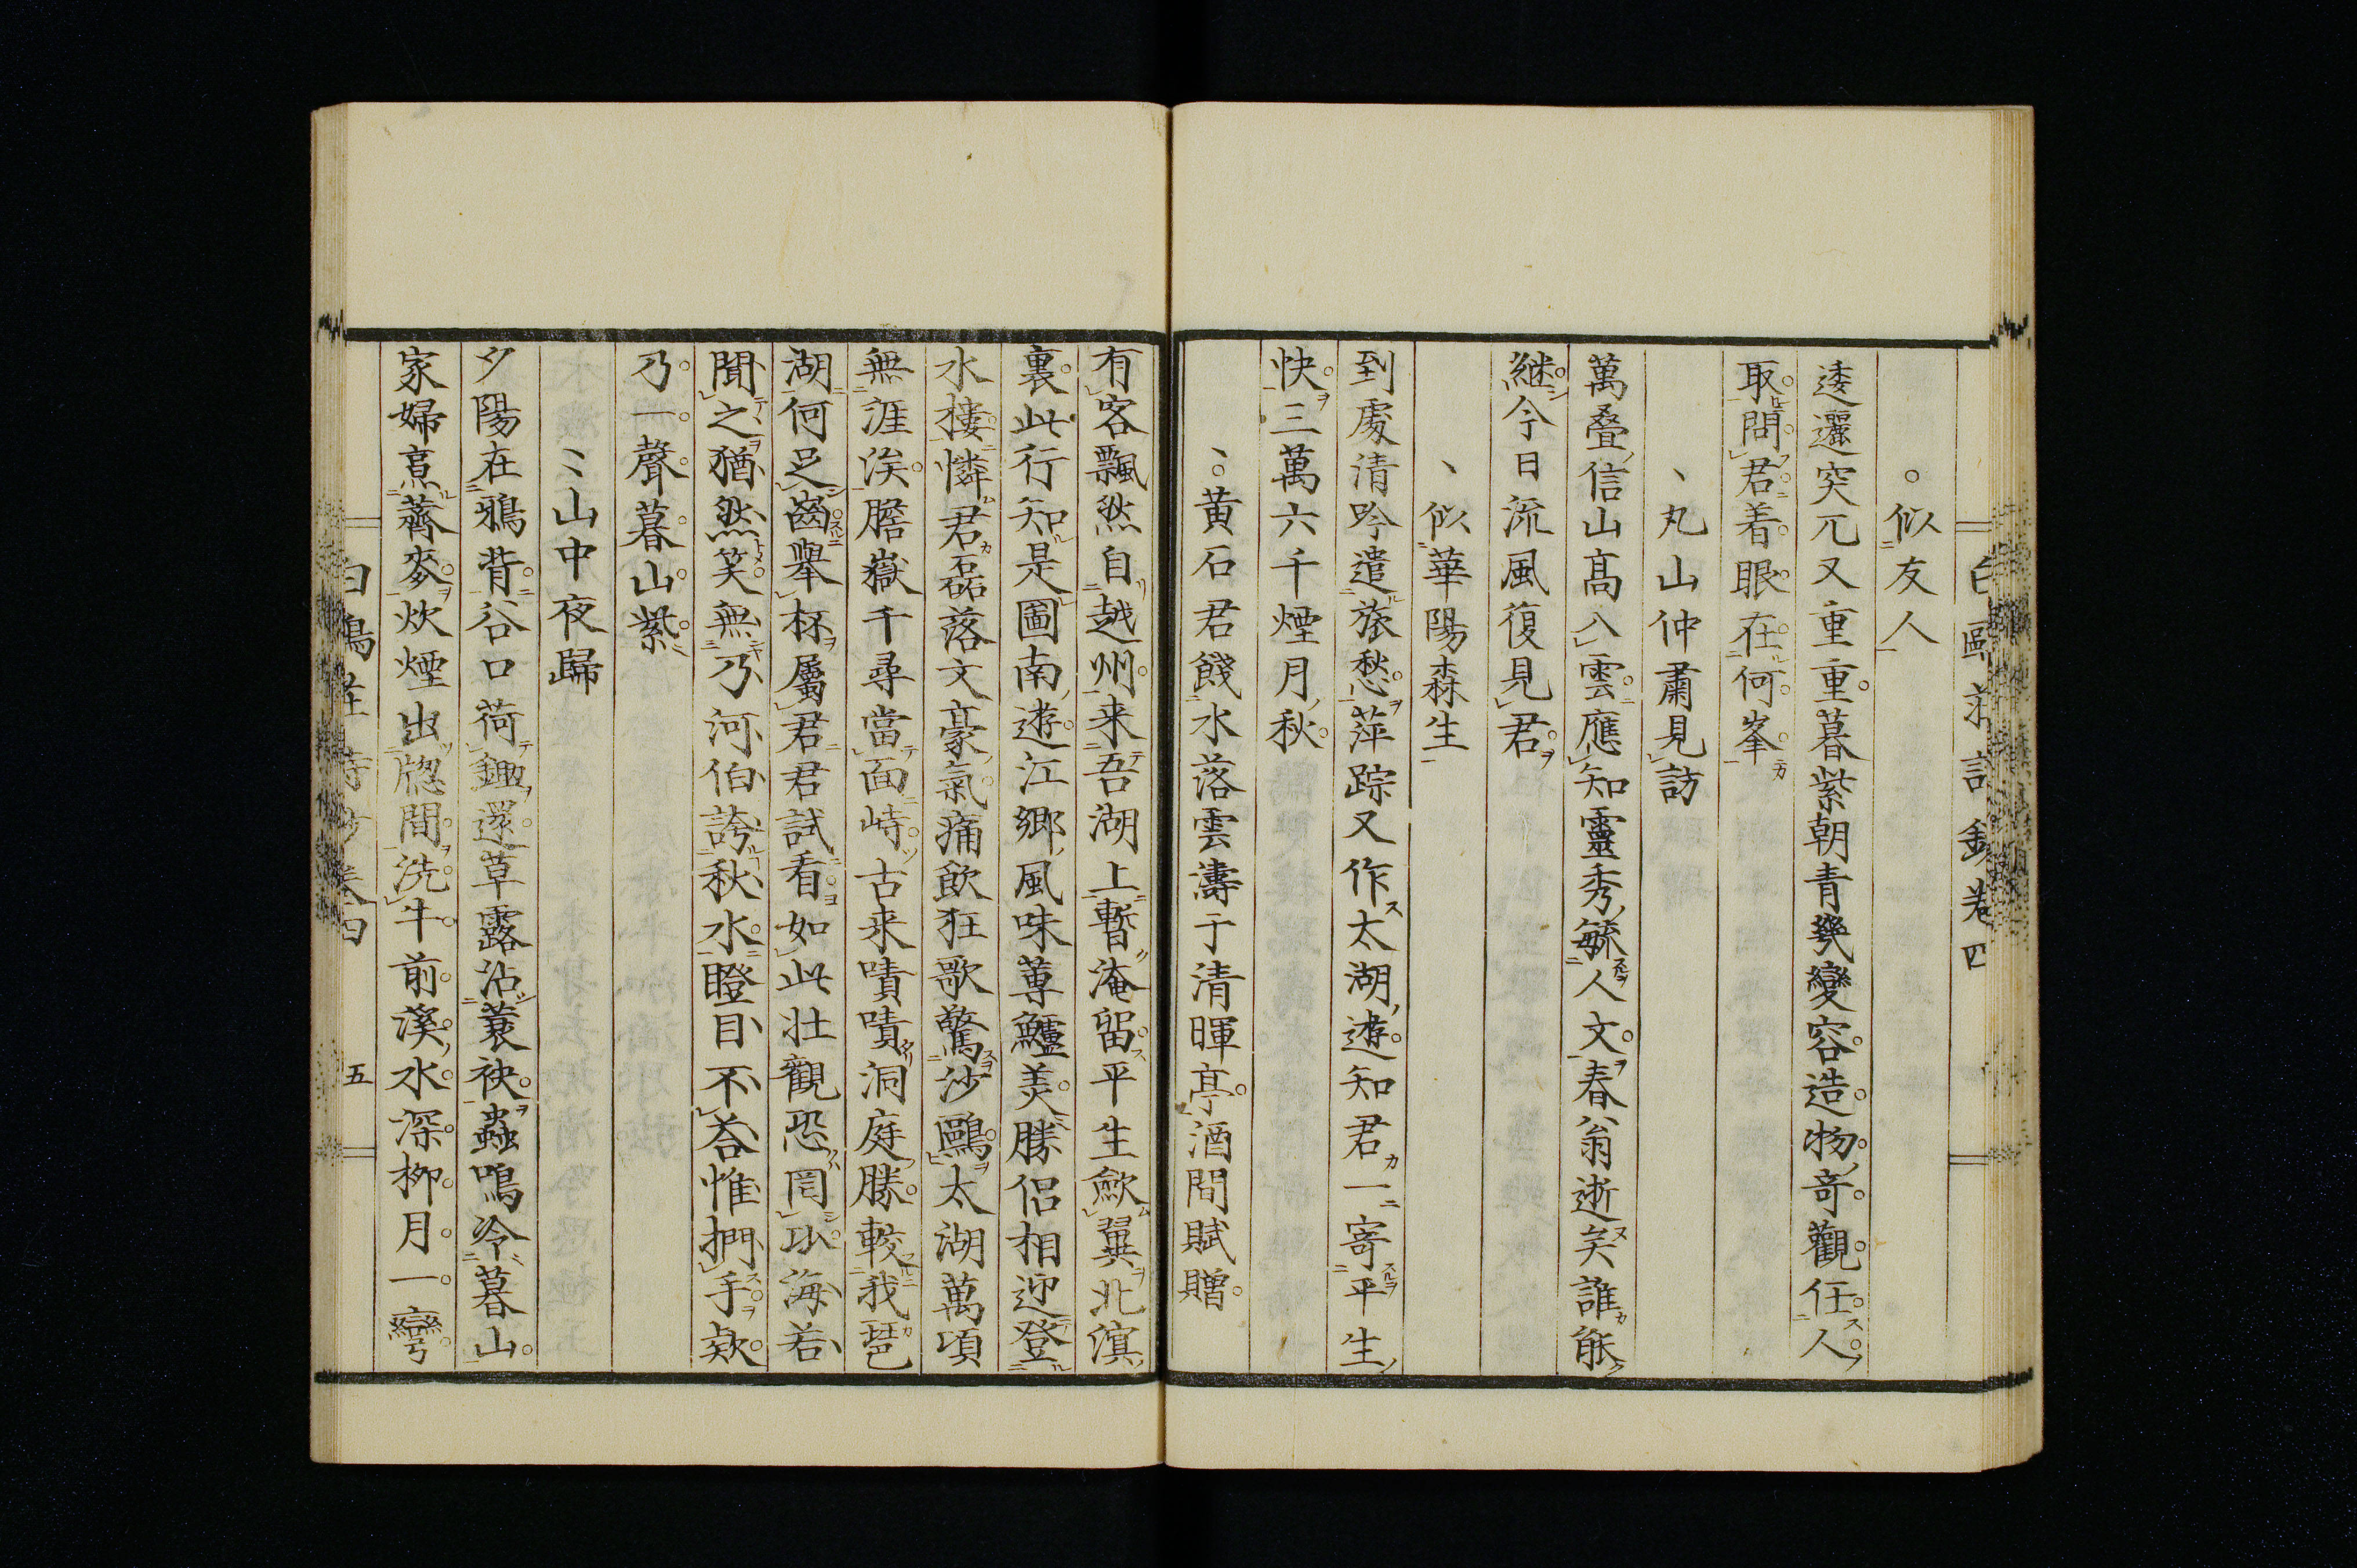 。似友人
逶邐突兀又重重暮紫朝青幾變容造物奇觀任人
取問君着眼在何峯
、丸山仲肅見訪
萬疊信山高入雲應知靈秀毓人文春翁逝矣誰能
継今日流風復見君
、似華陽森生
到處清吟遣旅愁萍踪又作太湖遊知君一寄平生
快三萬六千煙月秋
、。黄石君餞水落雲濤于清暉亭酒間賦贈
有客飄然自越州来吾湖上暫淹留平生歛翼北溟
裏此行知是圖南遊江郷風味蓴鱸羙勝侶相迎登
水樓憐君磊落文豪氣痛飲狂歌驚沙鷗太湖萬頃
無涯涘膽嶽千尋當面峙古来嘖嘖洞庭勝較我琶
湖何足齒舉杯屬君君試看如此壮觀恐罔以海若
聞之猶然笑無乃河伯誇秋水瞪目不荅惟捫手欸
乃一聲暮山紫
、、山中夜歸
夕陽在鴉背谷口荷鋤還草露沾蓑袂蟲鳴冷暮山
家婦烹薺麥炊煙出牕間洗牛前溪水深柳月一彎
五